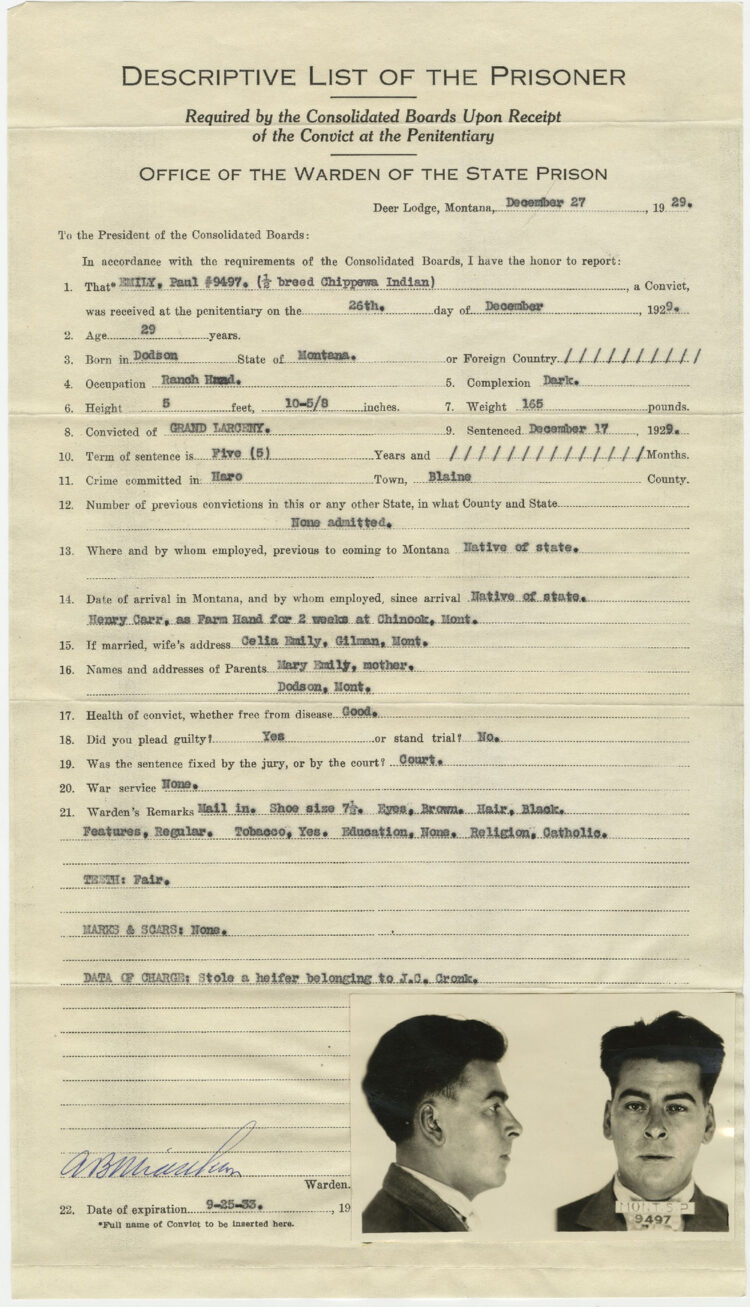 DESCRIPTIVE LIST OF THE PRISONER
Required by the Consolidated Boards Upon Receipt
of the Convict at the Penitentiary
OFFICE OF THE WARDEN OF THE STATE PRISON
Deer Lodge, Montana, December 27, 1929.
To the President of the Consolidated Boards:
In accordance with the requirements of the Consolidated Boards, I have the honor to report:
1. That* EMILY, Paul #9497. (½ breed Chippewa Indian), a Convict,
was received at the penitentiary on the 26th. day of December, 1929.
2. Age 29 years.
3. Born in Dodson State of Montana. or Foreign Country / / / / / / / / / / /
4. Occupation Ranch Hand. 5. Complexion Dark.
6. Height 5 feet, 10-5/8 inches. 7. Weight 165 pounds.
8. Convicted of GRAND LARCENY. 9. Sentenced December 17, 1929.
10. Term of sentence is Five (5) Years and / / / / / / / / / / / / / / / Months.
11. Crime committed in: Haro Town, Blaine County.
12. Number of previous convictions in this or any other State, in what County and State
None admitted.
13. Where and by whom employed, previous to coming to Montana Native of state.
14. Date of arrival in Montana, and by whom employed, since arrival Native of state.
Henry Carr, as Farm Hand for 2 weeks at Chinook, Mont.
15. If married, wife's address Celia Emily, Gilman, Mont.
16. Names and addresses of Parents Mary Emily, mother.
Dodson, Mont.
17. Health of convict, whether free from disease Good.
18. Did you plead guilty? Yes or stand trial? No.
19. Was the sentence fixed by the jury, or by the court? Court.
20. War service None.
21. Warden's Remarks Mail in. Shoe size 7½. Eyes, Brown. Hair, Black.
Features, Regular. Tobacco, Yes. Education, None. Religion, Catholic.
TEETH: Fair.
MARKS & SCARS: None.
DATA OF CHARGE: Stole a heifer belonging to J.C. Cronk.
Warden.
22. Date of expiration 9-25-33., 19
*Full name of Convict to be inserted here.
MONT S P
9497